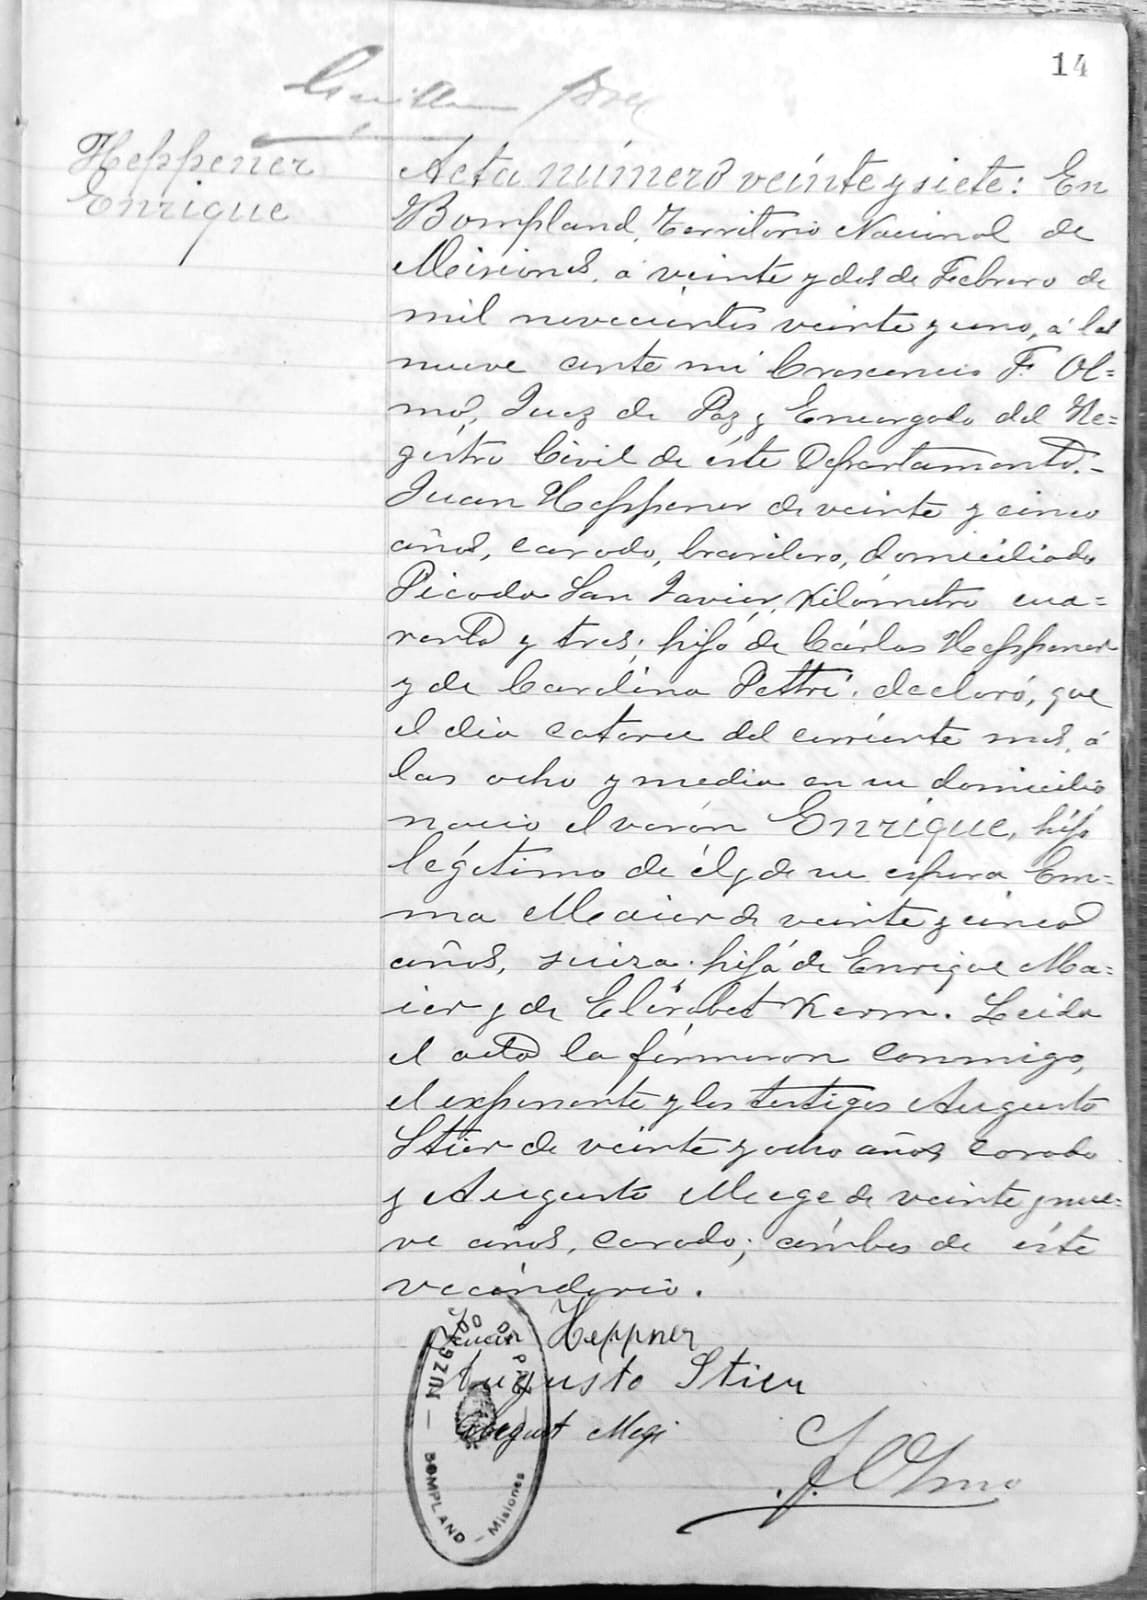 14
Heppener
Enrique
Acta número veinte y siete: En
Bompland, Territorio Nacional de
Misiones, a veinte y dos de Febrero de
mil novecientos veinte y uno, á las
nueve ante mi Crescencio F. Ol=
mo, Juez de Paz y Encargado del Re=
gistro Civil de éste Departamento.-
Juan Heppener de veinte y cinco
años, casado, brasilero, domiciliado
Picada San Javier, Kilómetro cua=
renta y tres; hijo de Cárlos Heppener
y de Carolina Pettri. declaró, que
el dia catorce del corriente mes, á
las ocho y media en su domicilio
nacio el varón Enrique, hijo
legítimo de él y de su esposa Em=
ma Maaier de veinte y cinco
años, suiza. hija de Enrique Ma=
ier y de Elisabet Kerm. Leida
el acta la firmaron conmigo,
el exponente y los testigos Augusto
Stier de veinte y ocho años casado
y Augusto Mege de veinte y nue=
ve años, casado; ámbos de éste
vecindario.
Juan Heppner
Augusto Stier
August Megi
F. Olmo
JUZGADO DE PAZ
— BOMPLAND — Misiones